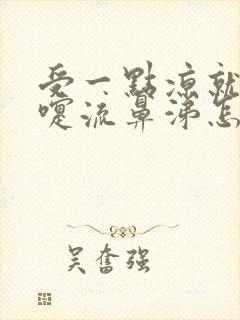 受一點涼就
嚏流鼻涕怎
吴奮强